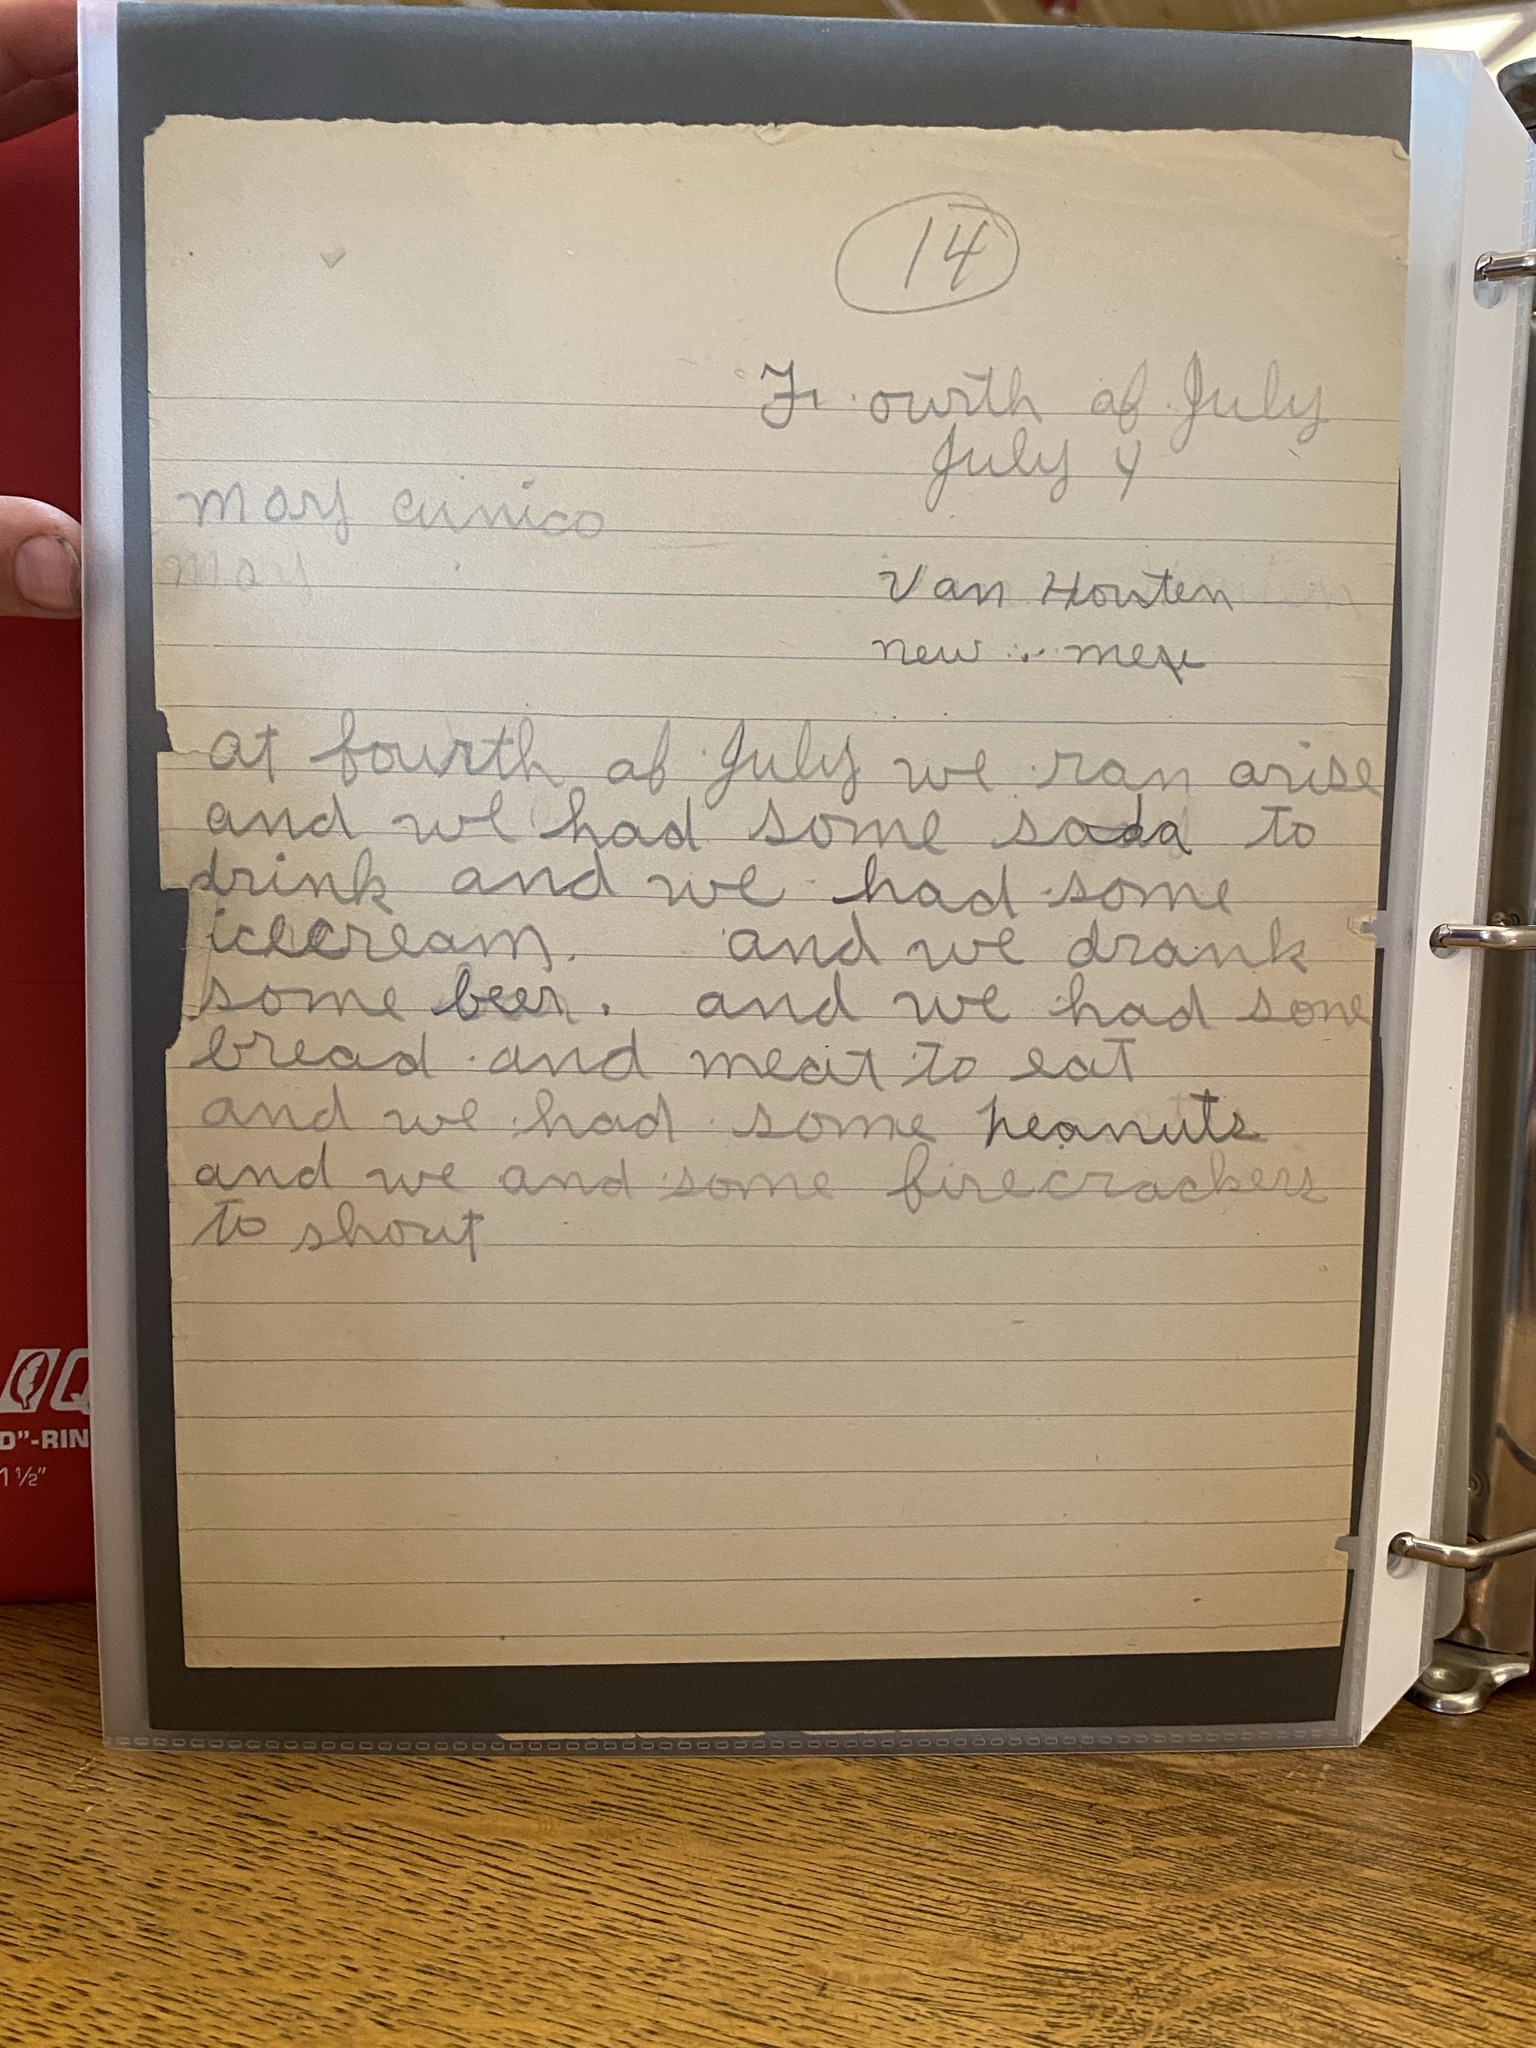 14
Fourth of July
July 4
Mary Cunico
May
Van Houten
new mex
at fourth of July we ran arise
and we had some soda to
drink and we had some
icecream. and we drank
some beer. and we had some
bread and meat to eat
and we had some peanuts
and we and some firecrackers
to shout
Q
D"-RIN
1 ½"